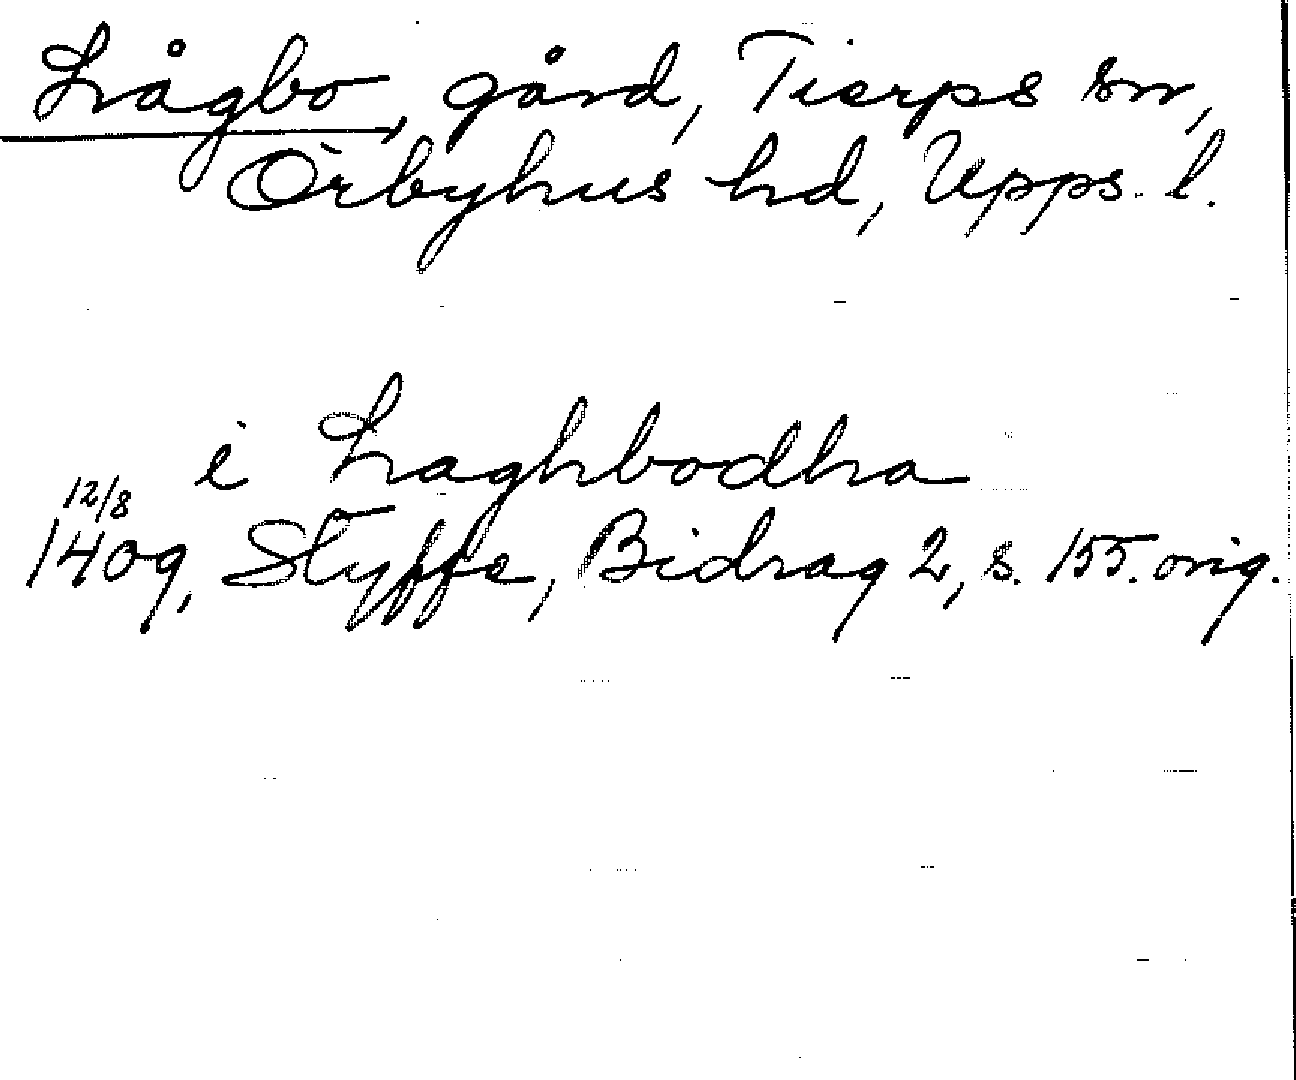 Lågbo, gård, Tierps sn,
Örbyhus hd, Upps. l.
i Laghbodha
12/8
1409, Styffe, Bidrag 2, s. 155. orig.